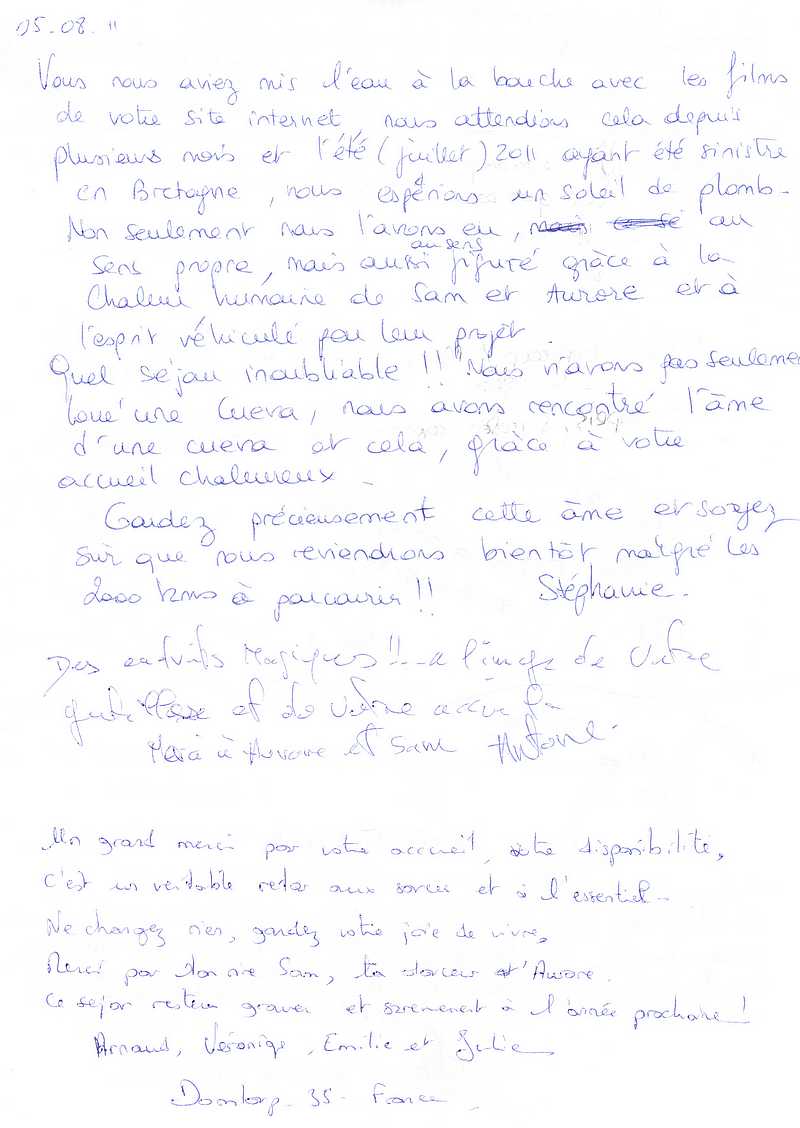 05.08.11
Vous nous aviez mis l'eau à la bouche avec les films
de votre site internet, nous attendions cela depuis
plusieurs mois et l'été (juillet) 2011 ayant été sinistre
en Bretagne, nous espérions un soleil de plomb.
Non seulement nous l'avons eu, au
sens propre, mais aussi au sens figuré grâce à la
chaleur humaine de Sam et Aurore et à
l'esprit véhiculé par leur projet.
Quel séjour inoubliable !! Nous n'avons pas seulement
loué une Cueva, nous avons rencontré l'âme
d'une cueva et cela, grâce à votre
accueil chaleureux.
Gardez précieusement cette âme et soyez
sûr que nous reviendrons bientôt malgré les
2000 kms à parcourir !!
Stéphanie.
Des endroits Magiques !!... à l'image de votre
et de votre accueil.
Merci à Aurore et Sam Antoine.
Un grand merci por votre accueil, votre disponibilité,
C'est un veritable retor aux sorces et à l'essentiel.
Ne changez rien, gardez votre joie de vivre,
Merci por ton rire Sam, ta doceur d'Aurore.
Ce sejor restera graver et surement à l'année prochaine !
Arnaud, Véroniqe, Emilie et Julie
35 - France